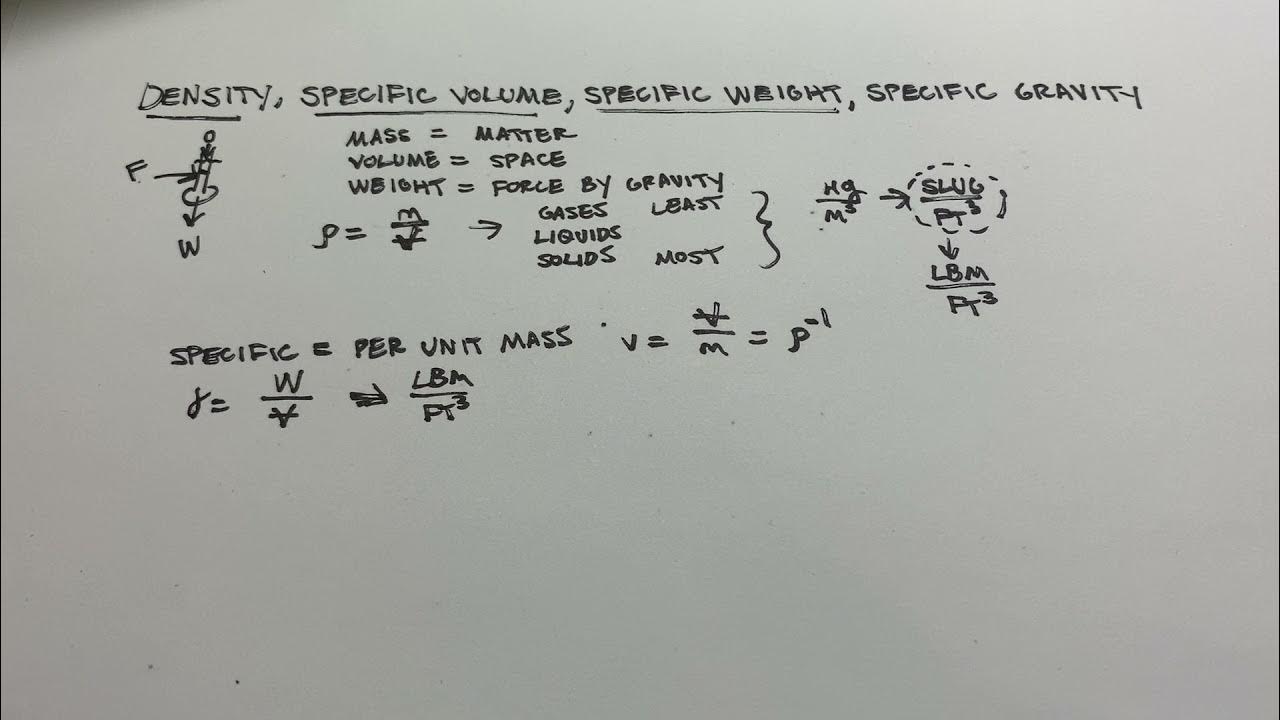 DENSITY, SPECIFIC VOLUME, SPECIFIC WEIGHT, SPECIFIC GRAVITY
MASS = MATTER
VOLUME = SPACE
F
WEIGHT = FORCE BY GRAVITY
W
ρ = m/V → GASES LEAST
LIQUIDS
SOLIDS MOST
Kg/M³ → SLUG/FT³
↓
LBM/FT³
SPECIFIC = PER UNIT MASS v = V/m = ρ⁻¹
γ = W/V ⇒ LBM/FT³